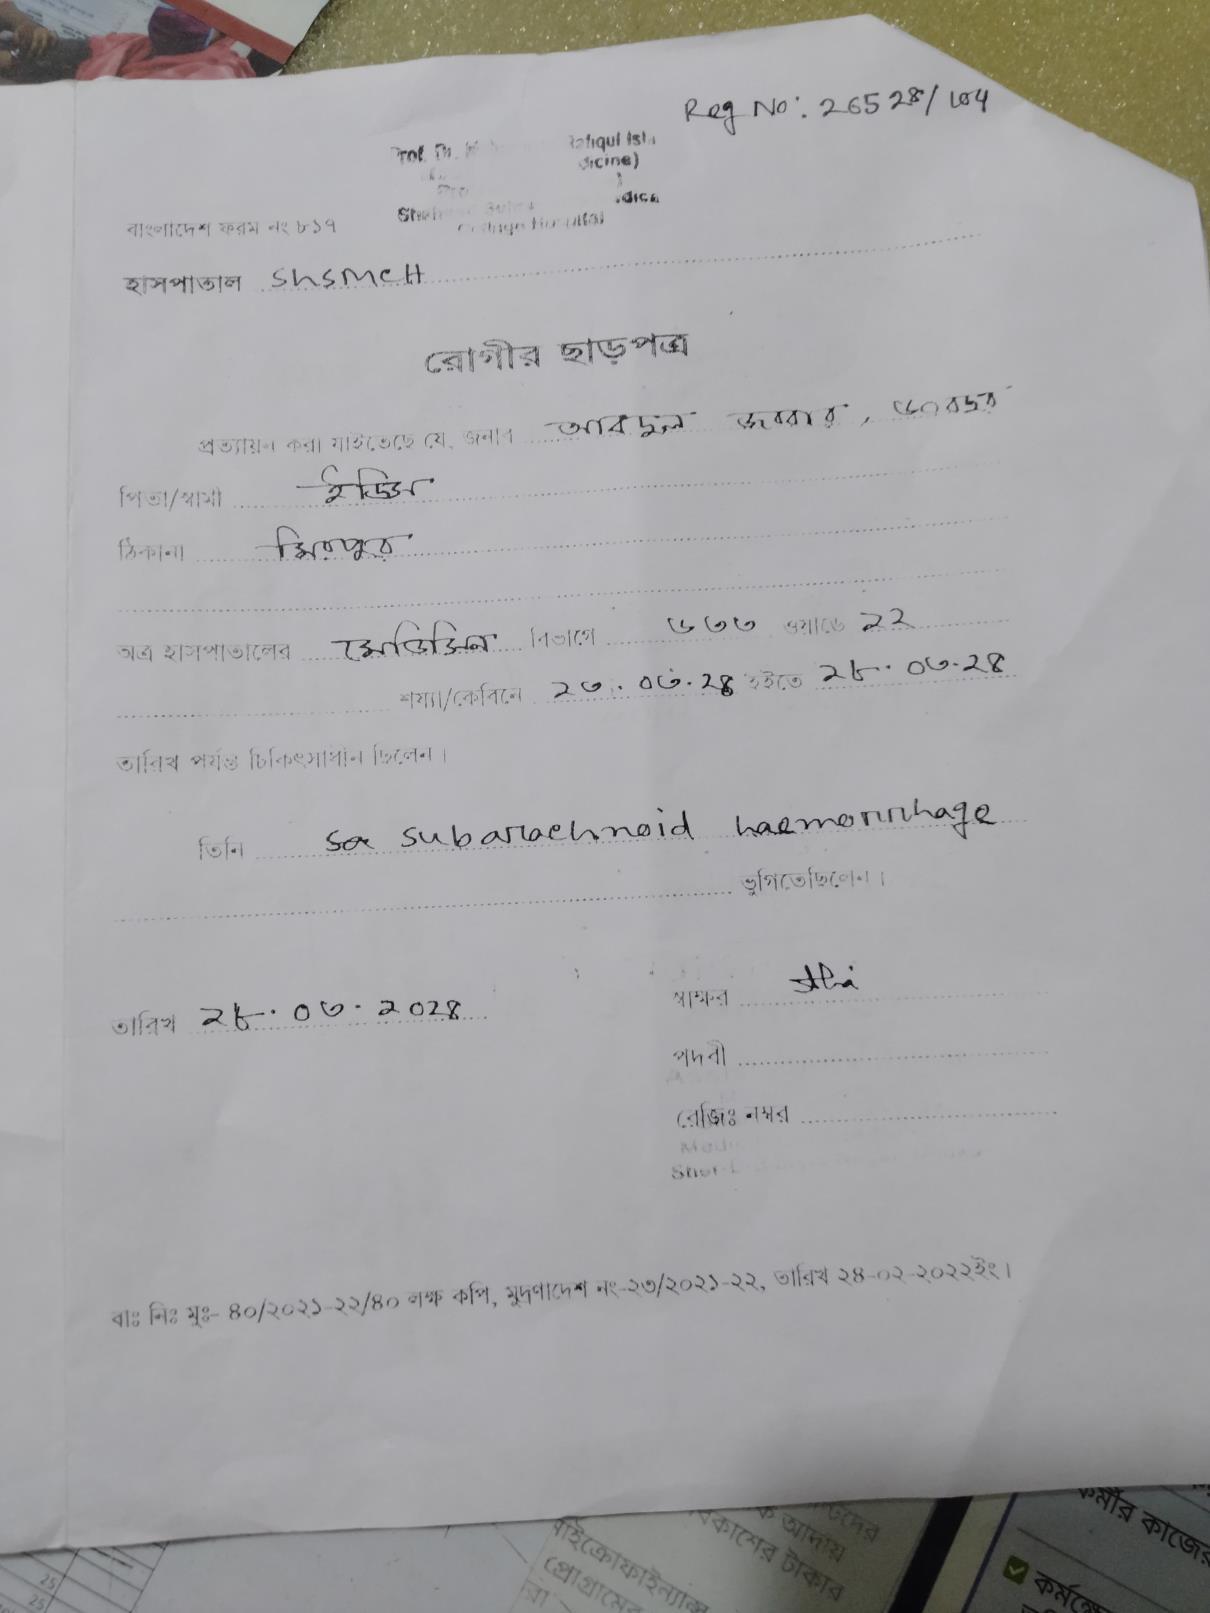 Reg No: 26528/104
Prof. Dr. Rafiqul Isla
dicine)
বাংলাদেশ ফরম নং ৮১৭
হাসপাতাল SHSMCH
রোগীর ছাড়পত্র
প্রত্যায়ন করা যাইতেছে যে, জনাব আবদুল জব্বার,
পিতা/স্বামী ইদ্রিস
ঠিকানা মিরপুর
অত্র হাসপাতালের মেডিসিন বিভাগে ৬৩৩ ওয়ার্ডে ২২
শয্যা/কেবিনে ২৩.০৩.২৪ হইতে ২৮.০৩.২৪
তারিখ পর্যন্ত চিকিৎসাধীন ছিলেন।
তিনি subarachnoid haemorrhage
ভুগিতেছিলেন।
তারিখ ২৮.০৩.২০২৪
স্বাক্ষর
পদবী
রেজিঃ নম্বর
বাঃ নিঃ মুঃ- ৪০/২০২১-২২/৪০ লক্ষ কপি, মুদ্রণাদেশ নং-২৩/২০২১-২২, তারিখ ২৪-০২-২০২২ইং।
কর্মীর কাজের
বিকাশের টাকার
মাইক্রোফাইন্যান্স
25
25